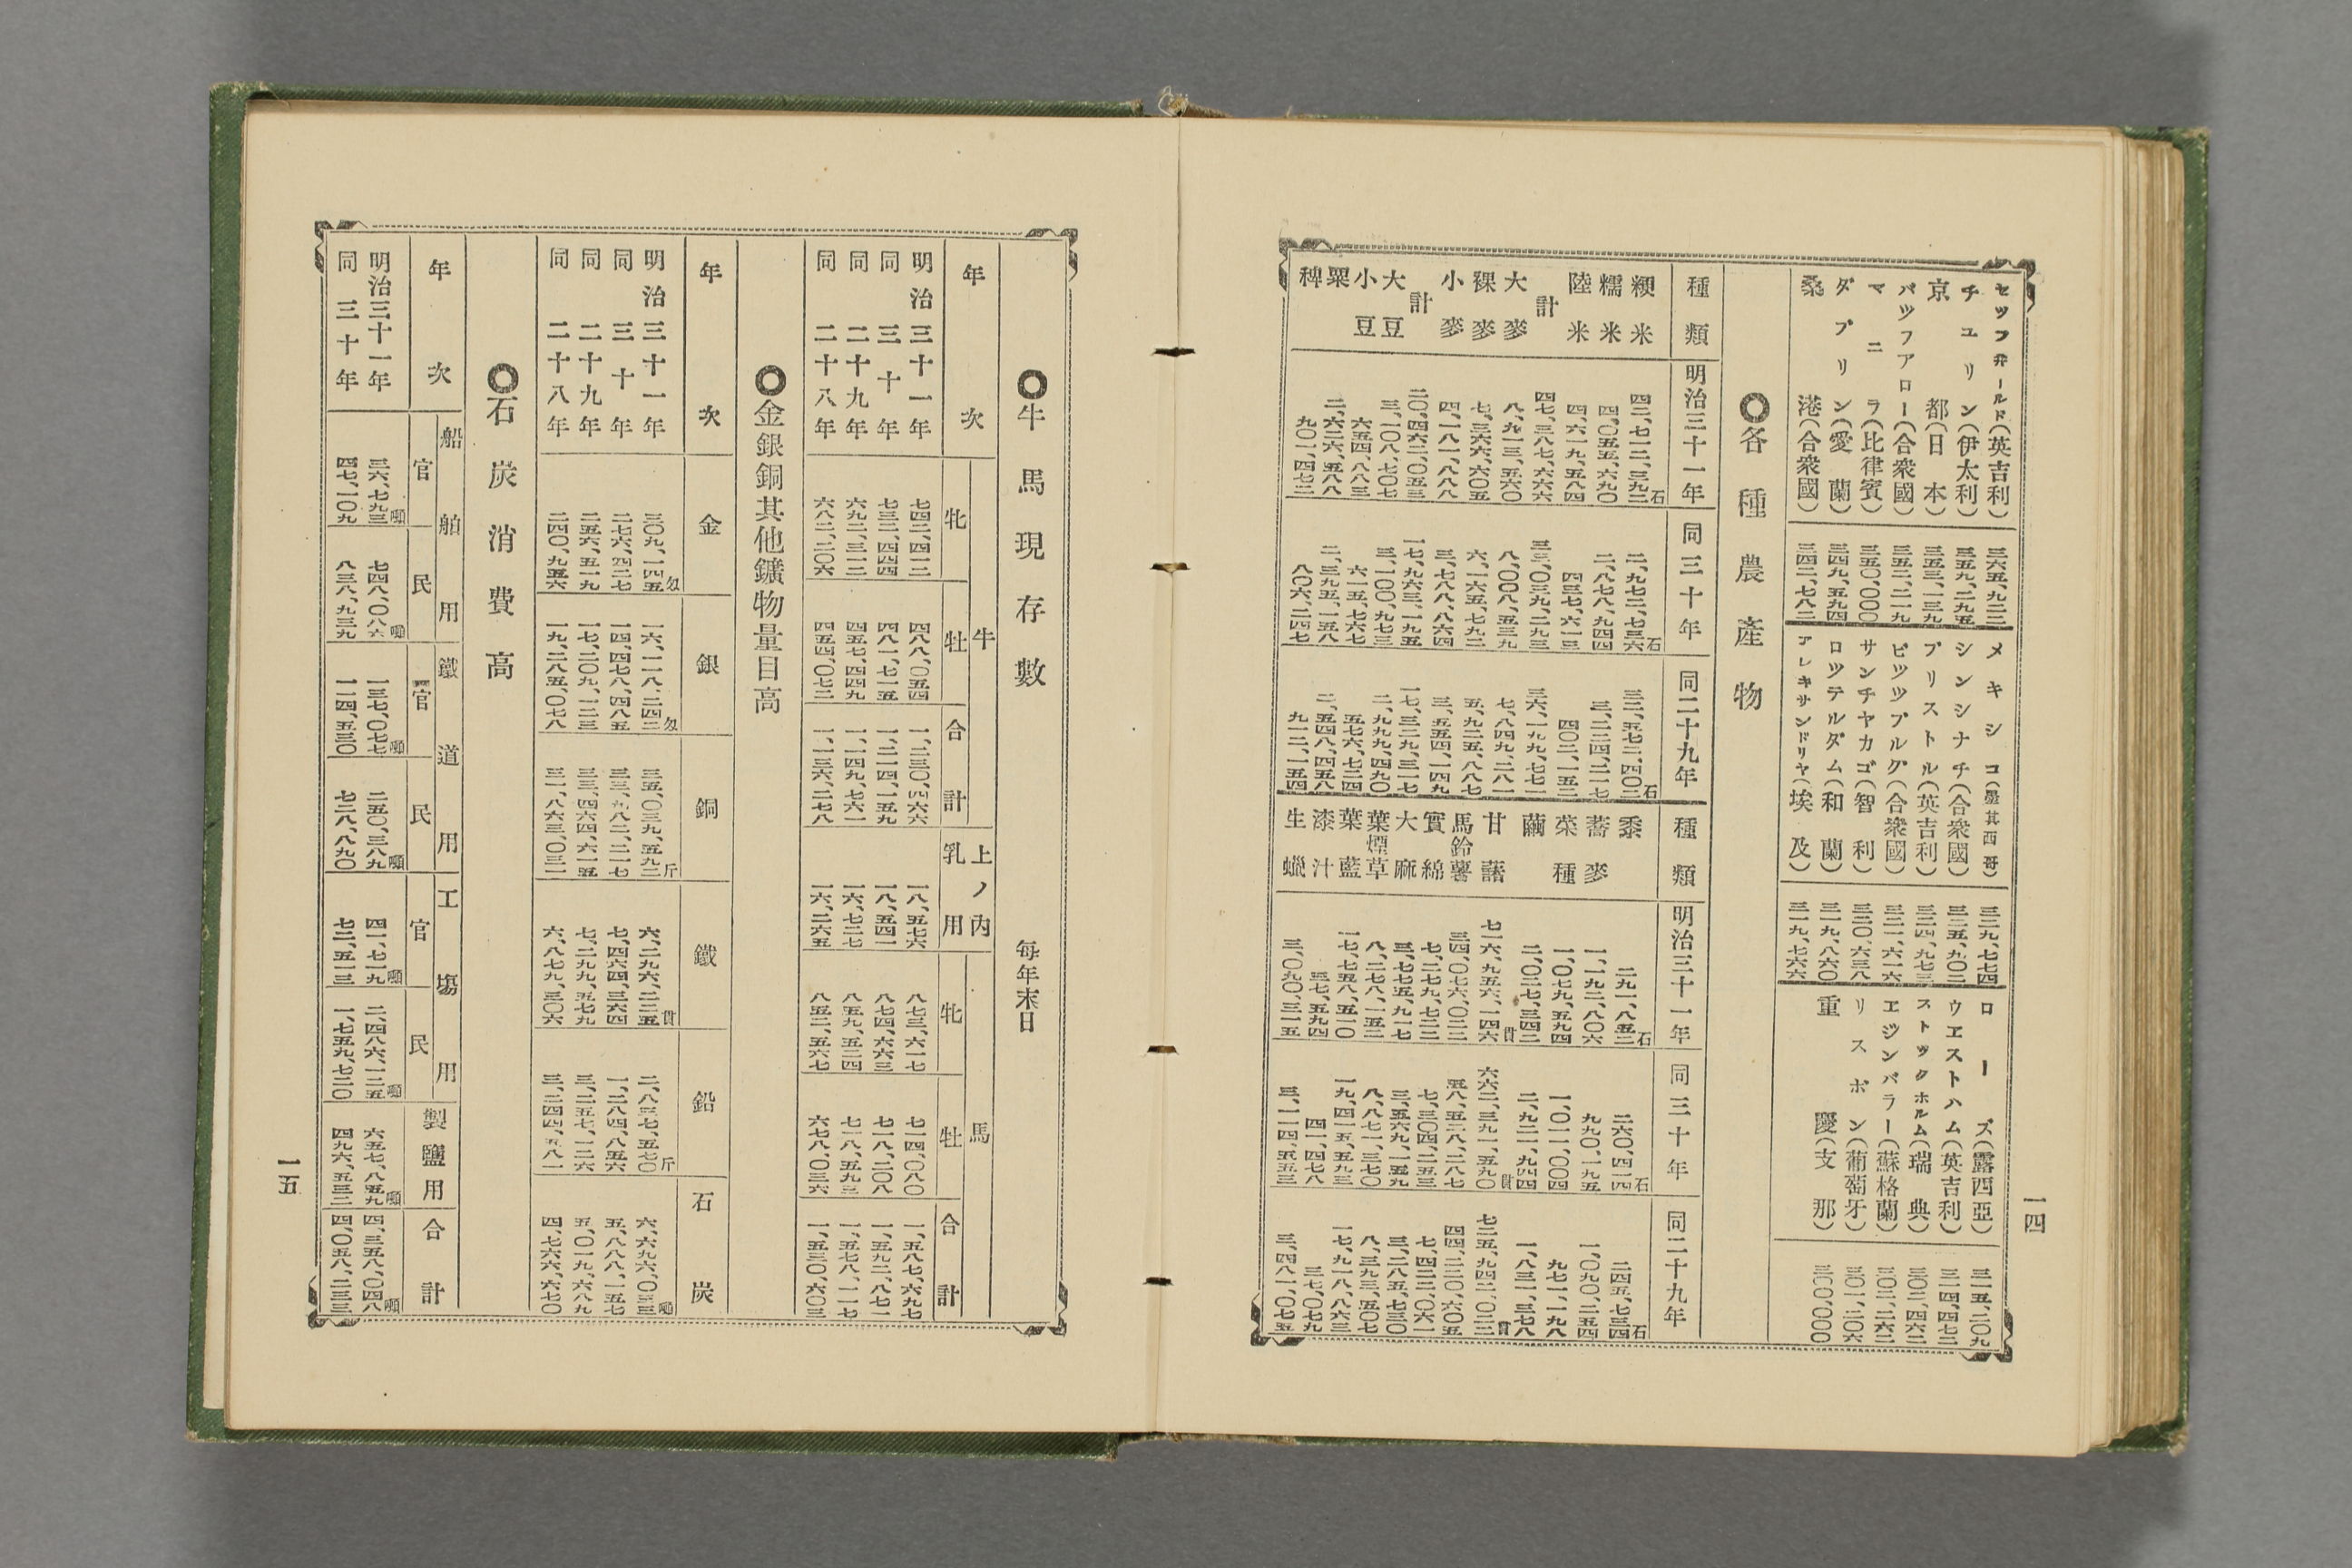 一四
セツフ井ールド(英吉利) 三六五、九二二
チユリン(伊太利) 三五九、二九五
京都(日本) 三五三、一三九
バツフアロー(合衆國) 三五二、二一九
マニラ(比律賓) 三五〇、〇〇〇
ダブリン(愛蘭) 三四九、五九四
桑港(合衆國) 三四二、七八二
メキシコ(墨其西哥) 三二九、七七四
シンシナチ(合衆國) 三二五、九〇二
ブリストル(英吉利) 三二四、九七三
ピツツブルグ(合衆國) 三二一、六一六
サンチヤカゴ(智利) 三二〇、六三八
ロツテルダム(和蘭) 三一九、八六〇
アレキサンドリヤ(埃及) 三一九、七六六
ローズ(露西亞) 三一五、二〇九
ウエストハム(英吉利) 三一四、四七二
ストツクホルム(瑞典) 三〇二、四六二
エジンバラー(蘇格蘭) 三〇二、二六二
リスボン(葡萄牙) 三〇一、二〇六
重慶(支那) 三〇〇、〇〇〇
各種農產物
種類 明治三十一年 同三十年 同二十九年
粳米 四二、七一二、三九二石 二、九七二、七三六石 三二、五七二、四〇二石
糯米 四、〇五五、六九〇 二、八七八、九四四 三、二二四、二一七
陸米 四、六一九、五八四 四三七、六一三 四〇二、一五二
計 四七、三八七、六六六 三三、〇三九、二九三 三六、一九九、七七一
大麥 八、九一三、五六〇 八、〇〇八、五三九 七、八四九、二八一
裸麥 七、三六六、六〇五 六、一六五、七九二 五、九二五、八八七
小麥 四、一八一、八八八 三、七八八、八六四 三、五五四、一四九
計 二〇、四六二、〇五三 一七、九六三、一九五 一七、三二九、三一七
大豆 三、一〇八、七〇七 三、一〇〇、九七三 二、九九九、四九〇
小豆 六五四、八八三 六一五、七六七 五七六、七二四
粟 二、六二六、五八八 二、三九五、一五八 二、五四八、四五八
稗 九〇一、四七二 八〇六、二四七 九一二、一五四
種類 明治三十一年 同三十年 同二十九年
黍 二九一、八五二石 二六〇、四一四石 二四五、七三四石
蕎麥 一、一九二、八〇六 九九〇、一九五 一、〇九〇、二五四
菜種 一、〇七九、五九四 一、〇一一、〇〇四 九七一、一九八
繭 二、〇二七、三四二 二、九二一、九四四 一、八三一、三七八
甘藷 七一六、九五六、一四六貫 六六二、三九一、五九〇貫 七二五、九四二、〇二二貫
馬鈴薯 三四、〇七六、〇二二 五八、五二八、二八七 四四、二二〇、六〇五
實綿 七、二七九、七二二 七、三〇四、二五三 七、四二二、〇六一
大麻 三、七七五、九一七 三、五六九、一五九 三、二八五、七三〇
葉煙草 八、二七八、一五二 八、八七一、三七〇 八、三九三、五〇七
葉藍 一七、七五八、五一〇 一九、四一五、五九三 一七、九一八、八六三
漆汁 三七、五九四 四一、四七八 三七、〇七九
生蠟 三、〇九〇、三一五 三、一一四、五五三 三、四八一、〇七五
牛馬現存數 每年末日
年次 牛 牝 牡 合計 上ノ內乳用 馬 牝 牡 合計
明治三十一年 七四二、四一二 四八八、〇五四 一、二三〇、四六六 一八、五七六 八七三、六一七 七一四、〇八〇 一、五八七、六九七
同三十年 七三二、四四四 四八一、七一五 一、二一四、一五九 一八、五四一 八七四、六六三 七一八、二〇八 一、五九二、八七一
同二十九年 六九二、三一二 四五七、四四九 一、一四九、七六一 一六、七二七 八五九、五二四 七一八、五九三 一、五七八、一一七
同二十八年 六八二、二〇六 四五四、〇七二 一、一三六、二七八 一六、二六五 八五二、五六七 六七八、〇三六 一、五三〇、六〇三
金銀銅其他鑛物量目高
年次 金 銀 銅 鐵 鉛 石炭
明治三十一年 三〇九、一四五匁 一六、一一八、二四二匁 三五、〇三九、五九二斤 六、二九六、二二五貫 二、八三七、五七〇斤 六、六九六、〇三三噸
同三十年 二七六、四二七 一四、四七八、四八五 三三、九八二、二一七 七、四六四、三六四 一、二八四、八五六 五、八八八、一五七
同二十九年 二五六、五一九 一七、二〇九、一二三 三三、四六四、六一五 七、二九九、五七九 三、二五七、一二六 五、〇一九、六八九
同二十八年 二四〇、九五六 一九、二八五、〇七八 三一、八六三、〇三一 六、八七九、三〇六 三、二四四、五八一 四、七六六、六七〇
石炭消費高
年次 船舶用 官 民 鐵道用 官 民 工場用 官 民 製鹽用 合計
明治三十一年 三六、七九三噸 七四八、〇八六噸 一三七、〇七七噸 二五〇、三八九噸 四一、七一九噸 二、四八六、一二五噸 六五七、八五九噸 四、三五八、〇四八噸
同三十年 四七、一〇九 八三八、九三九 一一四、五三〇 七二八、八九〇 七二、五一三 一、七五九、七二〇 四九六、五三二 四、〇五八、二三三
一五